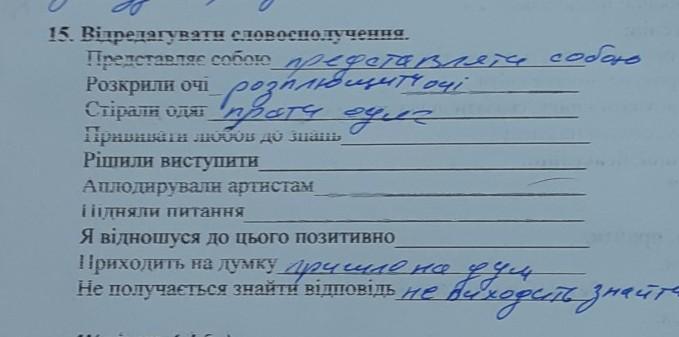 15. Відредагувати словосполучення.
Представляє собою представляти собою
Розкрили очі розплющити очі
Стірали одяг прати одяг
Прививати любов до знань
Рішили виступити
Аплодирували артистам
Підняли питання
Я відношуся до цього позитивно
Приходить на думку прийшло на ум
Не получається знайти відповідь не виходить знайти